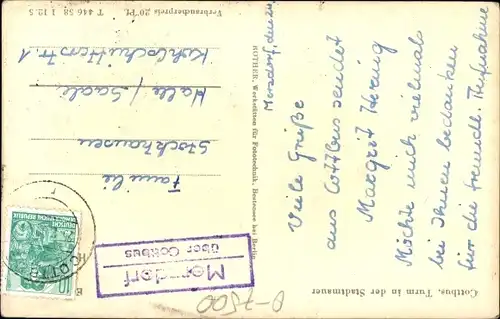 Merzdorf, den 20.
Viele Grüße
aus Cottbus sendet
Margrit Hering
Möchte mich vielmals
bei Ihnen bedanken
für die freundl. Aufnahme
Cottbus, Turm in der Stadtmauer
KÖTHER, Werkstätten für Fototechnik, Bestensee bei Berlin
Verbraucherpreis 20 Pf. T 446 58 1 12 5
Familie
Stockhausen
Halle / Saale
Merzdorf
über Cottbus
DEUTSCHE DEMOKRATISCHE REPUBLIK
10
COTTB
E
0-7500